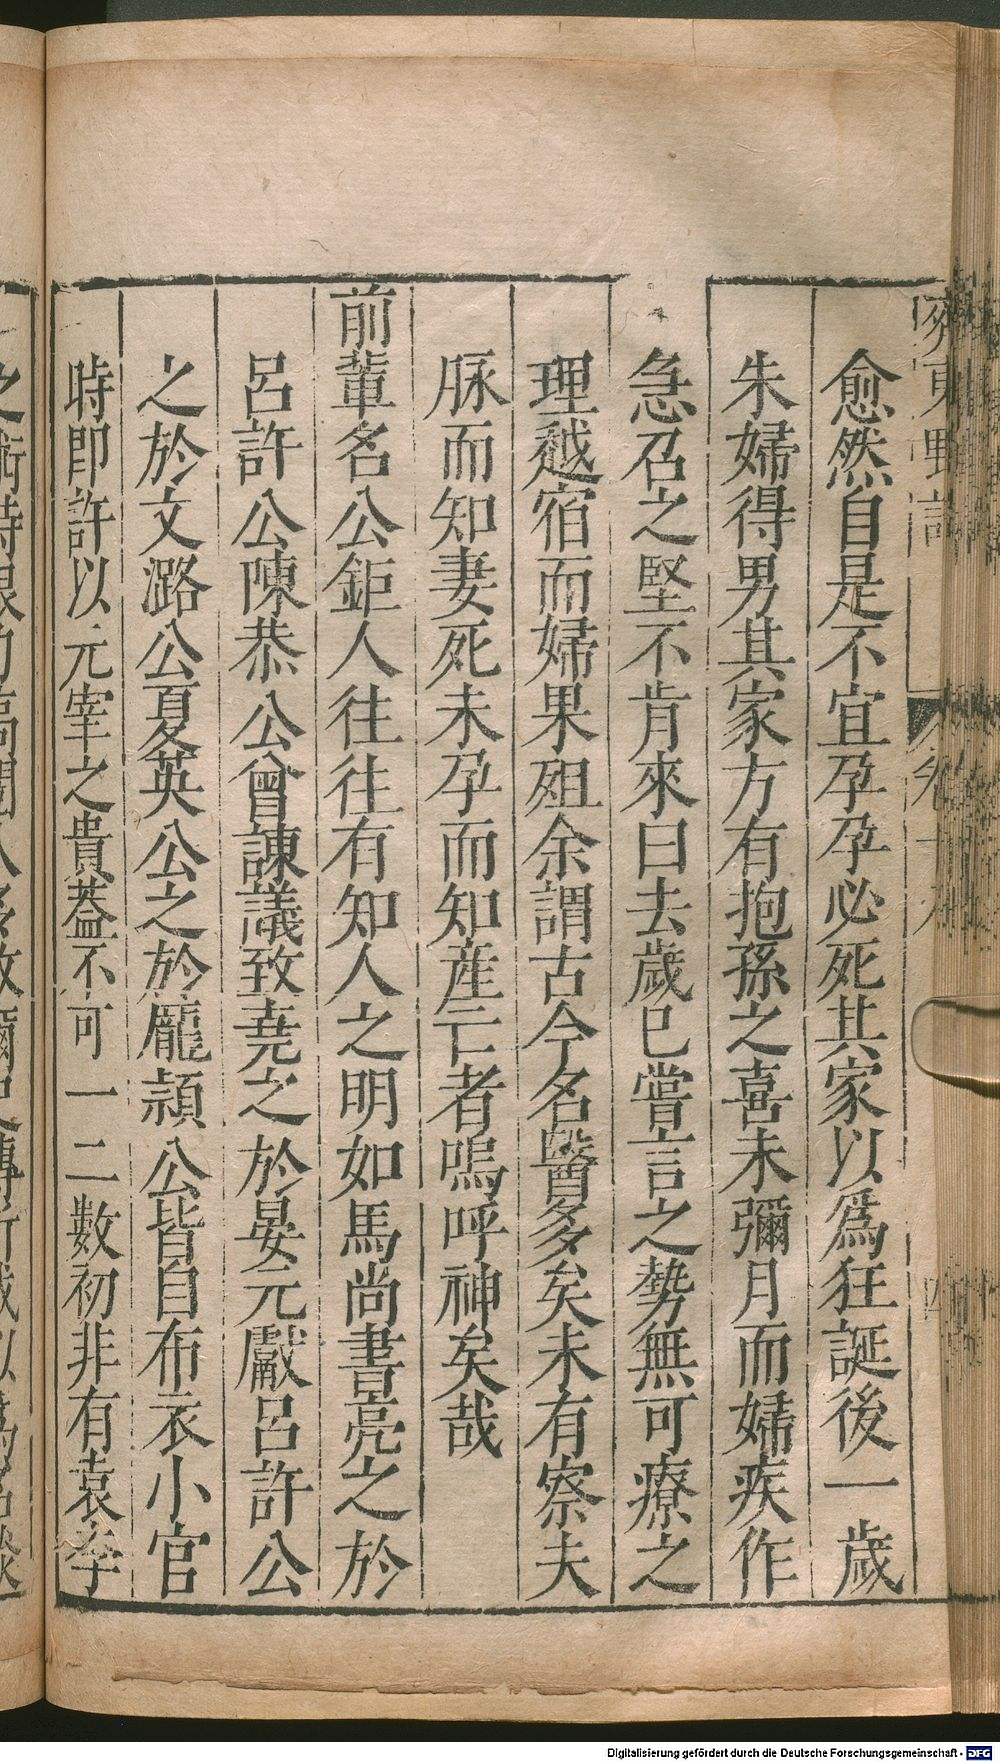 愈然自是不宜孕孕必死其家以爲狂誕後一歲
朱婦得男其家方有抱孫之喜未彌月而婦疾作
急召之堅不肯來曰去歲已嘗言之勢無可療之
理越宿而婦果殂余謂古今名醫多矣未有察夫
脉而知妻死未孕而知産亡者嗚呼神矣哉
前輩名公鉅人往往有知人之明如馬尚書亮之於
呂許公陳恭公曾諫議致堯之於晏元獻呂許公
之於文潞公夏英公之於龐頴公皆自布衣小官
時即許以元宰之貴葢不可一二數初非有袁李
Digitalisierung gefördert durch die Deutsche Forschungsgemeinschaft - DFG